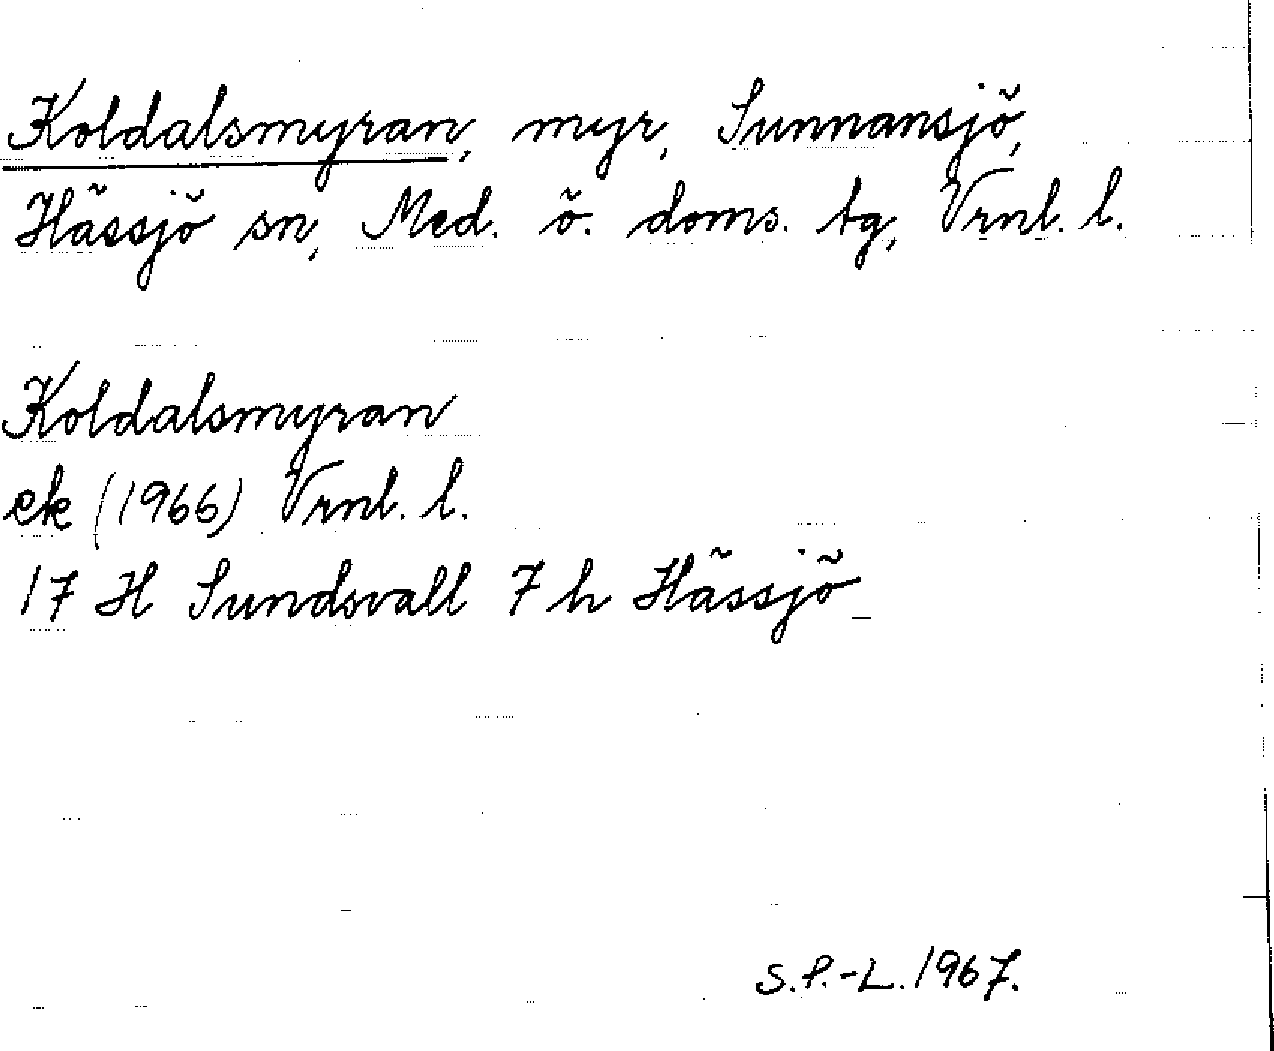 Koldalsmyran, myr, Sunnansjö,
Hässjö sn, Med. ö. doms. tg, Vrnl. l.
Koldalsmyran
ek (1966) Vrnl. l.
17 H Sundsvall 7 h Hässjö
S.P.-L. 1967.